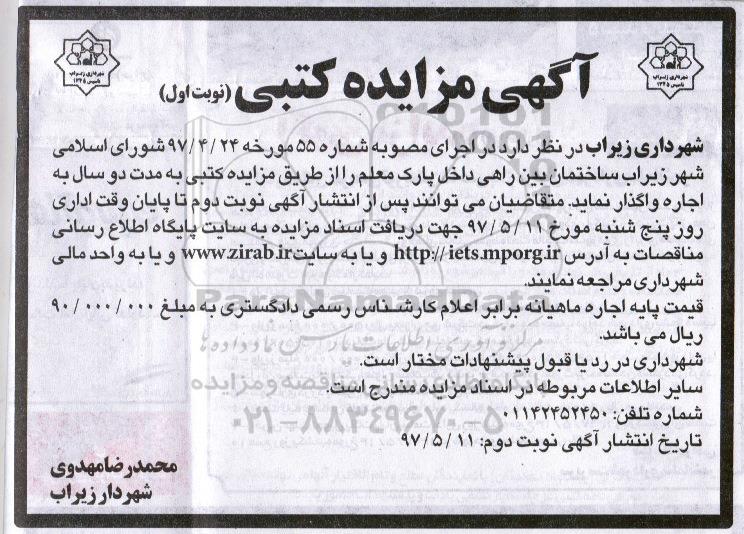 شهرداری زیراب
تاسیس ۱۳۴۵
شهرداری زیراب
تاسیس ۱۳۴۵
آگهی مزایده کتبی (نوبت اول)
شهرداری زیراب در نظر دارد در اجرای مصوبه شماره ۵۵ مورخه ۹۷/۴/۲۴ شورای اسلامی
شهر زیراب ساختمان بین راهی داخل پارک معلم را از طریق مزایده کتبی به مدت دو سال به
اجاره واگذار نماید. متقاضیان می توانند پس از انتشار آگهی نوبت دوم تا پایان وقت اداری
روز پنج شنبه مورخ ۹۷/۵/۱۱ جهت دریافت اسناد مزایده به سایت پایگاه اطلاع رسانی
مناقصات به آدرس http://iets.mporg.ir و یا به سایت www.zirab.ir و یا به واحد مالی
شهرداری مراجعه نمایند.
قیمت پایه اجاره ماهیانه برابر اعلام کارشناس رسمی دادگستری به مبلغ ۹۰/۰۰۰/۰۰۰
ریال می باشد.
شهرداری در رد یا قبول پیشنهادات مختار است.
سایر اطلاعات مربوطه در اسناد مزایده مندرج است.
شماره تلفن: ۰۱۱۴۲۴۵۲۴۵۰
تاریخ انتشار آگهی نوبت دوم: ۹۷/۵/۱۱
محمدرضا مهدوی
شهردار زیراب
ParsNamadData
مرکز فرآوری اطلاعات پارس نماد داده ها
۰۲۱-۸۸۳۴۹۶۷۰-۵